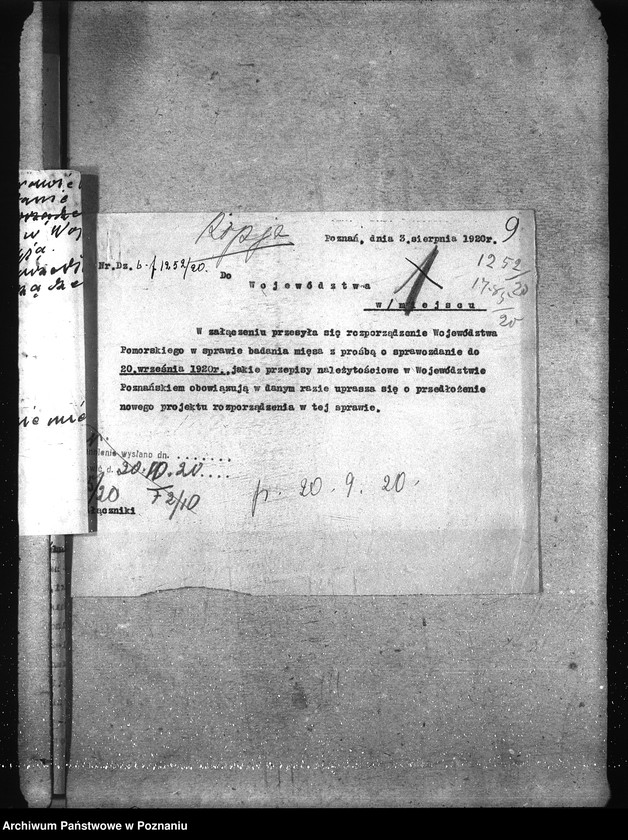 Kopja
9
Poznań, dnia 3.sierpnia 1920r.
Nr.Dz. 1252/20.
1252
20
Do
Województwa
w/miejscu
20
W załączeniu przesyła się rozporządzenie Województwa
Pomorskiego w sprawie badania mięsa z prośbą o sprawozdanie do
20.września 1920r.,jakie przepisy należytościowe w Województwie
Poznańskiem obowiązują w danym razie uprasza się o przedłożenie
nowego projektu rozporządzenia w tej sprawie.
wysłano dn. ........
20.10.20....
/20
2/10
20. 9. 20.
łączniki
w Woj
nie mie
Archiwum Państwowe w Poznaniu